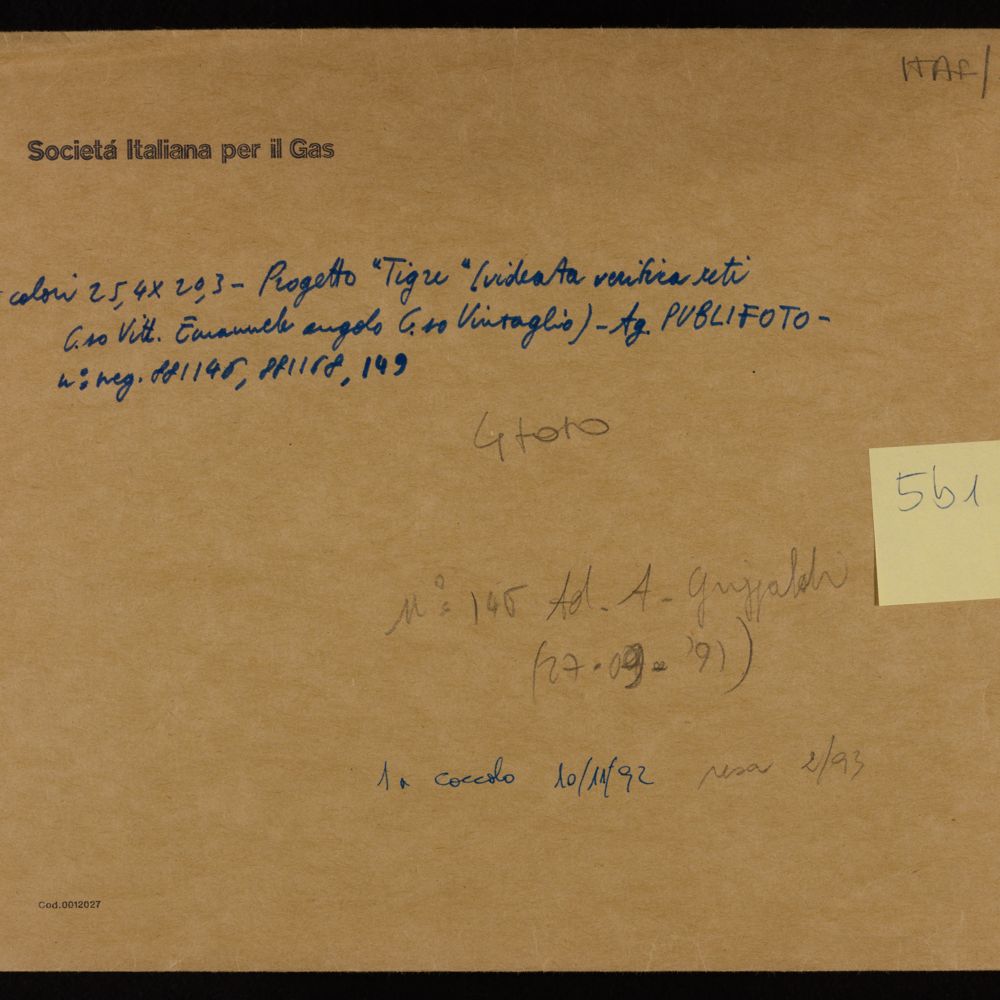 ITAF/
Societá Italiana per il Gas
colori 25,4x20,3 - Progetto "Tigre" (videata verifica reti
C.so Vitt. Emanuele angolo C.so Vinzaglio) - Ag. PUBLIFOTO -
n° neg. 881145, 881168, 149
4 foto
5b1
N°: 145 Ad. A.
(27.09.'91)
1 a coccolo 10/11/92 resa 2/93
Cod.0012027